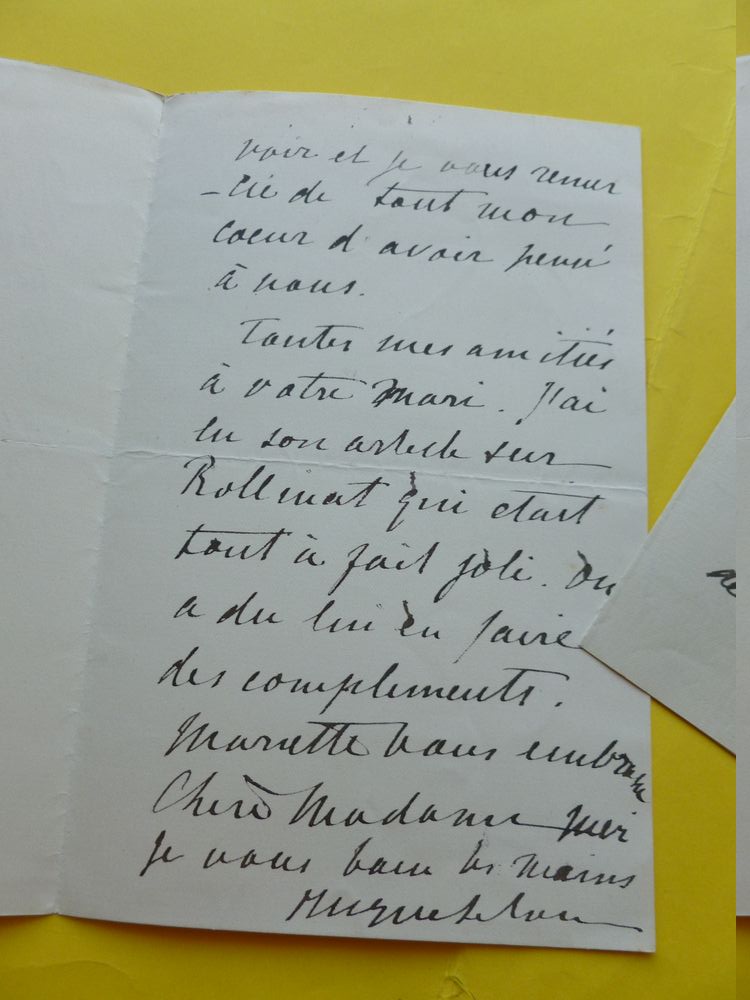 voir et je vous remer
-cie de tout mon
coeur d'avoir pensé
à nous.
Toutes mes amitiés
à votre mari. J'ai
lu son article sur
Rollinat qui était
tout à fait joli. On
a du lui en faire
des compliments.
Mariette vous embrasse
Chère Madame
je vous baise les mains